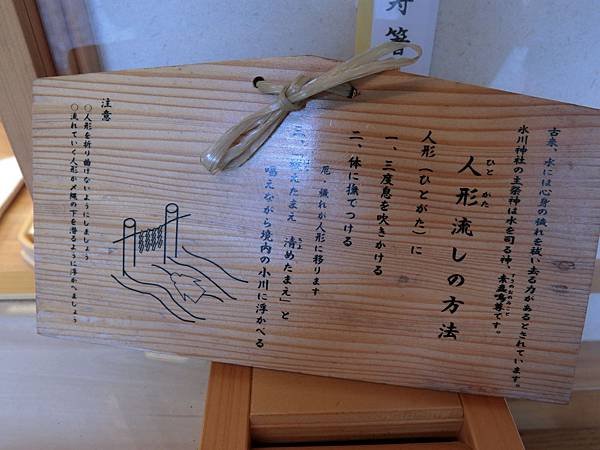 古来、水には心身の穢れを祓い去る力があるとされています。
氷川神社の主祭神は水を司る神、素盞嗚尊です。
すさのおのみこと
人形流しの方法
ひと がた
人形(ひとがた)に
一、三度息を吹きかける
二、体に撫でつける
厄、穢れが人形に移ります
三、
えたまえ 清めたまえ」と
きよ
唱えながら境内の小川に浮かべる
注意
〇人形を折り曲げないようにしましょう
〇流れていく人形が〆縄の下を潜るように浮かべましょう
寿箸